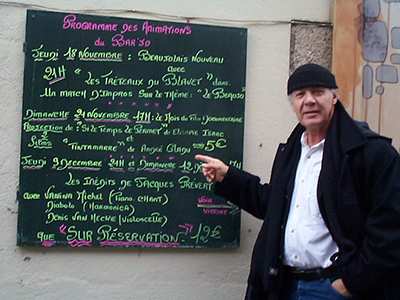 PROGRAMME DES ANIMATIONS
du BAR'JO
JEUDI 18 NOVEMBRE : BEAUJOLAIS NOUVEAU
avec
21H "LES TRÉTEAUX DU BLAVET" dans
UN MATCH D'IMPROS SUR LE THÈME : "LE BEAUJO"
DIMANCHE 21 NOVEMBRE 17H : LE MOIS DU FILM DOCUMENTAIRE
PROJECTION DE : "SI LE TEMPS LE PERMET" DE ELISAPIE ISAAC
2 FILMS ET "TINTAMARRE" DE ANDRÉ GLADU 5€
JEUDI 9 DECEMBRE 21H ET DIMANCHE 12 17H
LES INÉDITS DE JACQUES PRÉVERT
avec MICHEL (PIANO. CHANT)
DIABOLO (HARMONICA) VOIR
DENIS VAN HECKE (VIOLONCELLE) VITRINE
QUE "SUR RÉSERVATION" 12€